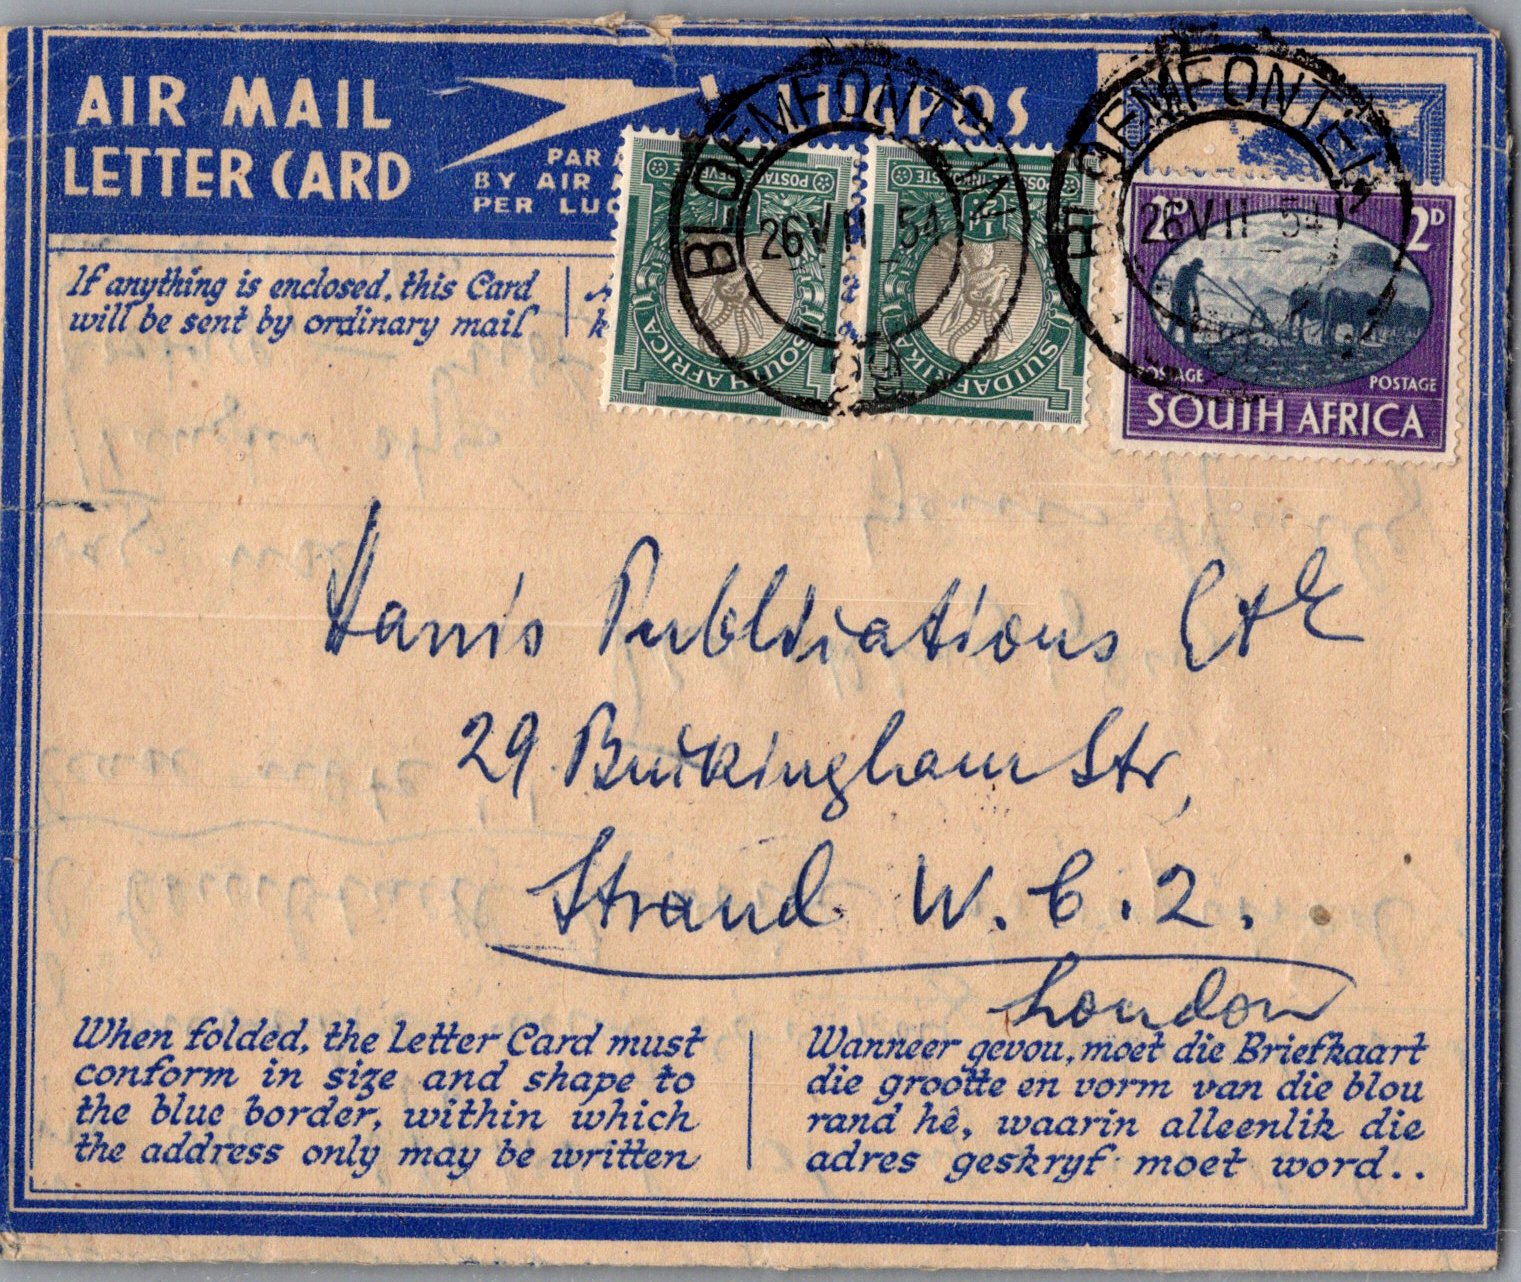 AIR MAIL
LETTER CARD
LUGPOS
PAR
BY AIR
PER LUG
If anything is enclosed, this Card
will be sent by ordinary mail
POSTAGE
SOUTH AFRICA
SUIDAFRIKA
BLOEMFONTEIN
26 VII 54
BLOEMFONTEIN
26 VII 54
2D
POSTAGE
POSTAGE
SOUTH AFRICA
Harris Publications Ltd
29 Buckingham Str,
Strand W.C.2.
London
When folded, the Letter Card must
conform in size and shape to
the blue border, within which
the address only may be written
Wanneer gevou, moet die Briefkaart
die grootte en vorm van die blou
rand hê, waarin alleenlik die
adres geskryf moet word..